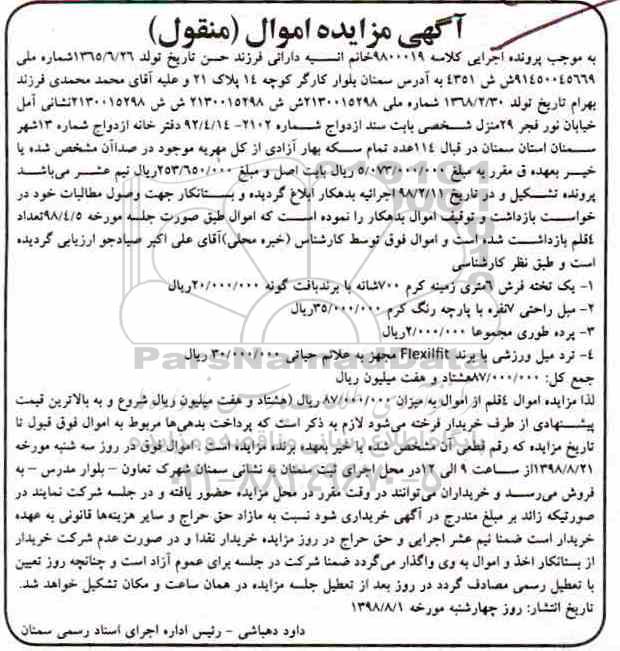 آگهی مزایده اموال (منقول)
به موجب پرونده اجرایی کلاسه ۹۸۰۰۰۱۹خانم انسیه دارائی فرزند حسن تاریخ تولد ۱۳۶۵/۶/۲۶شماره ملی
۹۱۴۵۰۰۴۵۶۶۹ش ش ۴۳۵۱ به آدرس سمنان بلوار کارگر کوچه ۱۴ پلاک ۲۱ و علیه آقای محمد محمدی فرزند
بهرام تاریخ تولد ۱۳۶۸/۲/۳۰ شماره ملی ۲۱۳۰۰۱۵۲۹۸ش ش ۲۱۳۰۰۱۵۲۹۸ ش ش ۲۱۳۰۰۱۵۲۹۸نشانی آمل
خیابان نور فجر ۲۹منزل شخصی بابت سند ازدواج شماره ۲۱۰۲- ۹۲/۴/۱۴ دفتر خانه ازدواج شماره ۱۳شهر
سمنان استان سمنان در قبال ۱۱۴عدد تمام سکه بهار آزادی از کل مهریه موجود در صداآن مشخص شده یا
خیر بعهده ق مقرر به مبلغ ۵/۰۷۳/۰۰۰/۰۰۰ ریال بابت اصل و مبلغ ۲۵۳/۶۵۰/۰۰۰ریال نیم عشر می‌باشد
پرونده تشکیل و در تاریخ ۹۸/۲/۱۱ اجرائیه بدهکار ابلاغ گردیده و بستانکار جهت وصول مطالبات خود در
خواست بازداشت و توقیف اموال بدهکار را نموده است که اموال طبق صورت جلسه مورخه ۹۸/۴/۵تعداد
۴قلم بازداشت شده است و اموال فوق توسط کارشناس (خبره محلی)آقای علی اکبر صیادجو ارزیابی گردیده
است و طبق نظر کارشناسی
۱- یک تخته فرش ۶متری زمینه کرم ۷۰۰شانه با برندبافت گونه ۲۰/۰۰۰/۰۰۰ریال
۲- مبل راحتی ۷نفره با پارچه رنگ کرم ۳۵/۰۰۰/۰۰۰ریال
۳- پرده طوری مجموعا ۲/۰۰۰/۰۰۰ریال
۴- ترد میل ورزشی با برند Flexilfit مجهز به علائم حیاتی ۳۰/۰۰۰/۰۰۰ ریال
جمع کل: ۸۷/۰۰۰/۰۰۰هشتاد و هفت میلیون ریال
لذا مزایده اموال ۴قلم از اموال به میزان ۸۷/۰۰۰/۰۰۰ ریال (هشتاد و هفت میلیون ریال شروع و به بالاترین قیمت
پیشنهادی از طرف خریدار فرخته می‌شود لازم به ذکر است که پرداخت بدهی‌ها مربوط به اموال فوق قبول تا
تاریخ مزایده که رقم قطعی آن مشخص شده یا خیر بعهده برنده مزایده است . اموال فوق در روز سه شنبه مورخه
۱۳۹۸/۸/۲۱از ساعت ۹ الی ۱۲در محل اجرای ثبت سمنان به نشانی سمنان شهرک تعاون - بلوار مدرس - به
فروش می‌رسد و خریداران می‌توانند در وقت مقرر در محل مزایده حضور یافته و در جلسه شرکت نمایند در
صورتیکه زائد بر مبلغ مندرج در آگهی خریداری شود نسبت به مازاد حق حراج و سایر هزینه‌ها قانونی به عهده
خریدار است ضمنا نیم عشر اجرایی و حق حراج در روز مزایده خریدار نقدا و در صورت عدم شرکت خریدار
از بستانکار اخذ و اموال به وی واگذار می‌گردد ضمنا شرکت در جلسه برای عموم آزاد است و چنانچه روز تعیین
با تعطیل رسمی مصادف گردد در روز بعد از تعطیل جلسه مزایده در همان ساعت و مکان تشکیل خواهد شد.
تاریخ انتشار: روز چهارشنبه مورخه ۱۳۹۸/۸/۱
داود دهباشی - رئیس اداره اجرای اسناد رسمی سمنان
ParsNamadData
۰۲۱-۸۸۳۴۹۶۷۰-۵